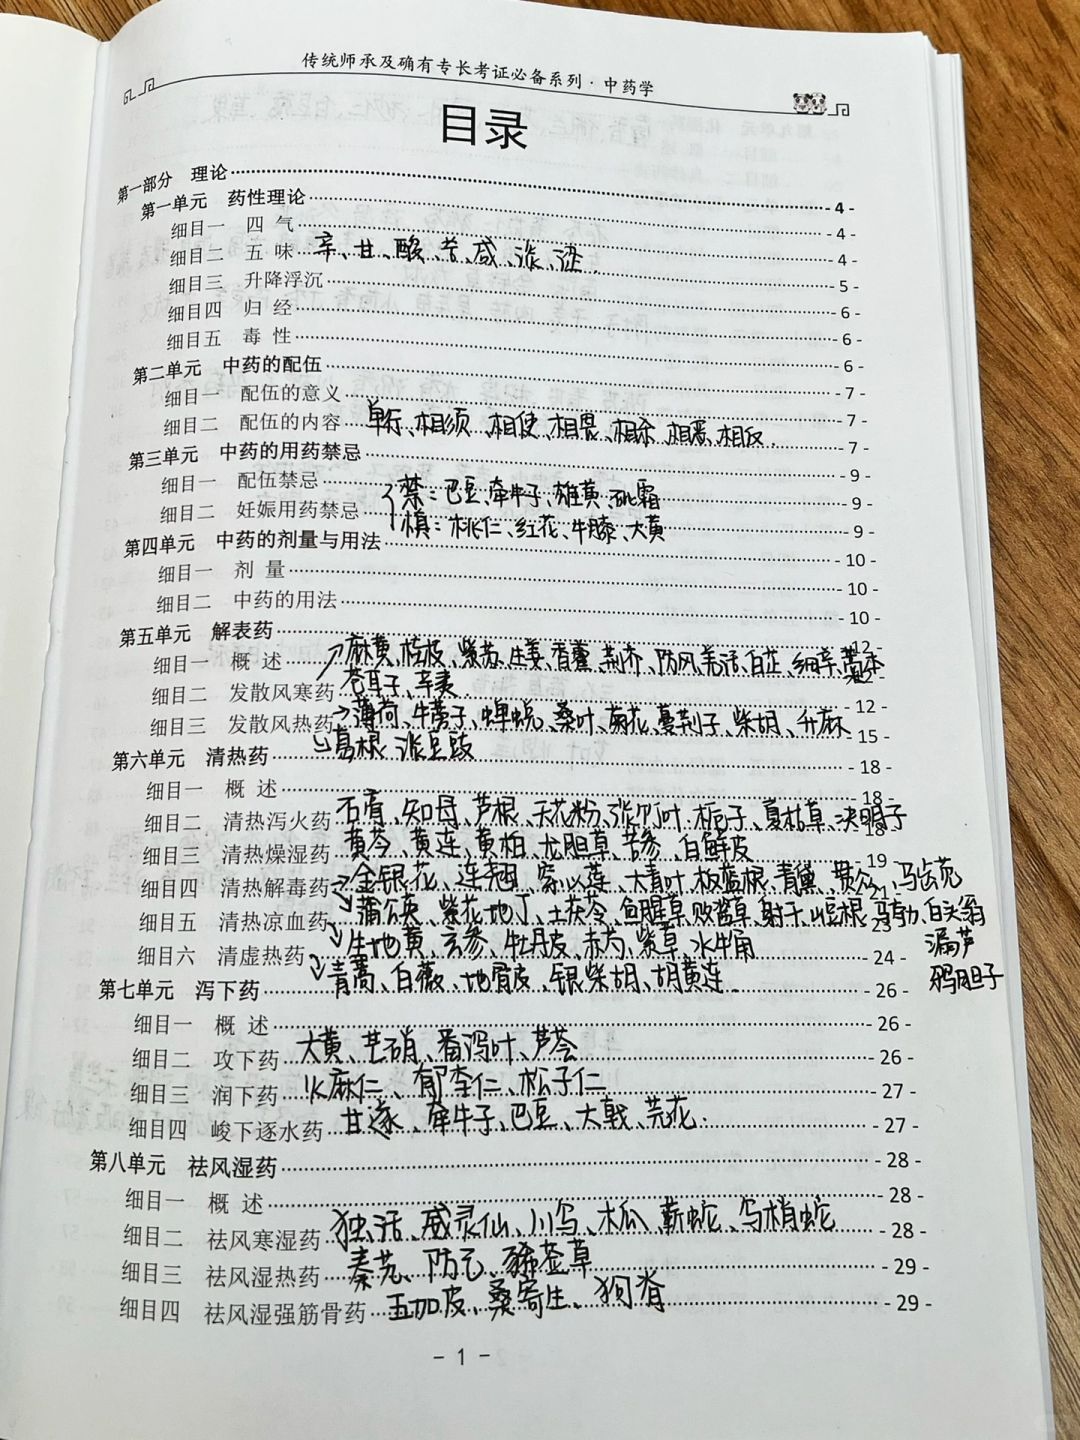 传统师承及确有专长考证必备系列·中药学
目录
第一部分 理论
第一单元 药性理论 - 4 -
细目一 四气 - 4 -
细目二 五味 辛、甘、酸、苦、咸、淡、涩. - 4 -
细目三 升降浮沉 - 5 -
细目四 归经 - 6 -
细目五 毒性 - 6 -
第二单元 中药的配伍 - 6 -
细目一 配伍的意义 - 7 -
细目二 配伍的内容 单行、相须、相使、相畏、相杀、相恶、相反. - 7 -
第三单元 中药的用药禁忌 - 7 -
细目一 配伍禁忌 - 9 -
禁：巴豆、牵牛子、雄黄、砒霜
细目二 妊娠用药禁忌 - 9 -
慎：桃仁、红花、牛膝、大黄
第四单元 中药的剂量与用法 - 9 -
细目一 剂量 - 10 -
细目二 中药的用法 - 10 -
- 10 -
第五单元 解表药 - 12 -
细目一 概述 - 12 -
麻黄、桂枝、紫苏、生姜、香薷、荆芥、防风、羌活、白芷、细辛、藁本
细目二 发散风寒药 苍耳子、辛夷 - 12 -
细目三 发散风热药 薄荷、牛蒡子、蝉蜕、桑叶、菊花、蔓荆子、柴胡、升麻 - 15 -
葛根、淡豆豉
第六单元 清热药 - 18 -
细目一 概述 - 18 -
细目二 清热泻火药 石膏、知母、芦根、天花粉、淡竹叶、栀子、夏枯草、决明子 - 18 -
细目三 清热燥湿药 黄芩、黄连、黄柏、龙胆草、苦参、白鲜皮 - 19 -
细目四 清热解毒药 金银花、连翘、穿心莲、大青叶、板蓝根、青黛、贯众、马齿苋
蒲公英、紫花地丁、土茯苓、鱼腥草、败酱草、射干、山豆根、马勃、白头翁
漏芦
鸦胆子
细目五 清热凉血药 生地黄、玄参、牡丹皮、赤芍、紫草、水牛角 - 23 -
细目六 清虚热药 青蒿、白薇、地骨皮、银柴胡、胡黄连. - 24 -
第七单元 泻下药 - 26 -
细目一 概述 - 26 -
细目二 攻下药 大黄、芒硝、番泻叶、芦荟 - 26 -
细目三 润下药 火麻仁、郁李仁、松子仁 - 27 -
细目四 峻下逐水药 甘遂、牵牛子、巴豆、大戟、芫花. - 27 -
第八单元 祛风湿药 - 28 -
细目一 概述 - 28 -
细目二 祛风寒湿药 独活、威灵仙、川乌、木瓜、蕲蛇、乌梢蛇 - 28 -
细目三 祛风湿热药 秦艽、防己、豨莶草 - 29 -
细目四 祛风湿强筋骨药 五加皮、桑寄生、狗脊 - 29 -
- 1 -